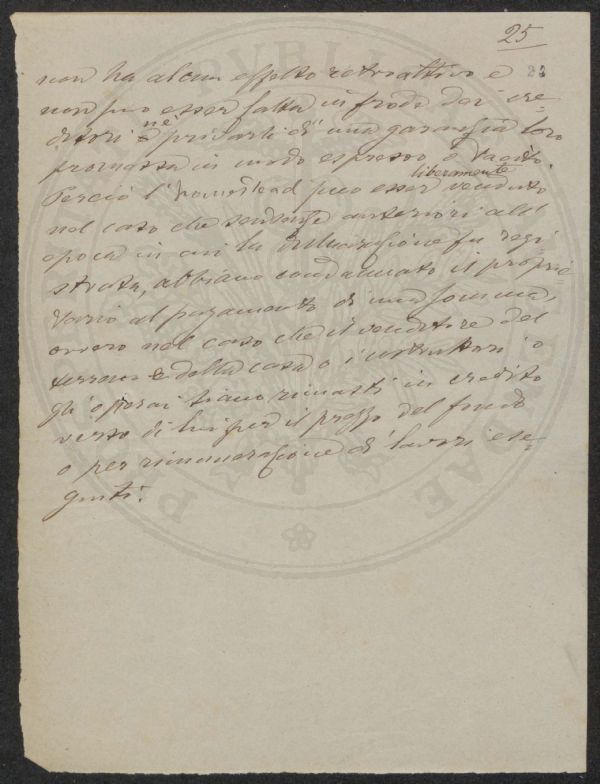 25
24
non ha alcun effetto retroattivo e
non puo esser fatta in frode dei cre=
ditori nè privarli di una garanzia loro
promessa in modo espresso o tacito.
Perciò l'homestead puo esser liberamente venduto
nel caso che sentenze anteriori all'
epoca in cui la dichiarazione fu regi=
strata, abbiano condannato il proprie=
tario al pagamento di una somma,
ovvero nel caso che il venditore del
terreno e della casa o i costruttori o
gli operai siano rimasti in credito
verso di lui per il prezzo del fondo
o per rimunerazione di lavori ese=
guiti.